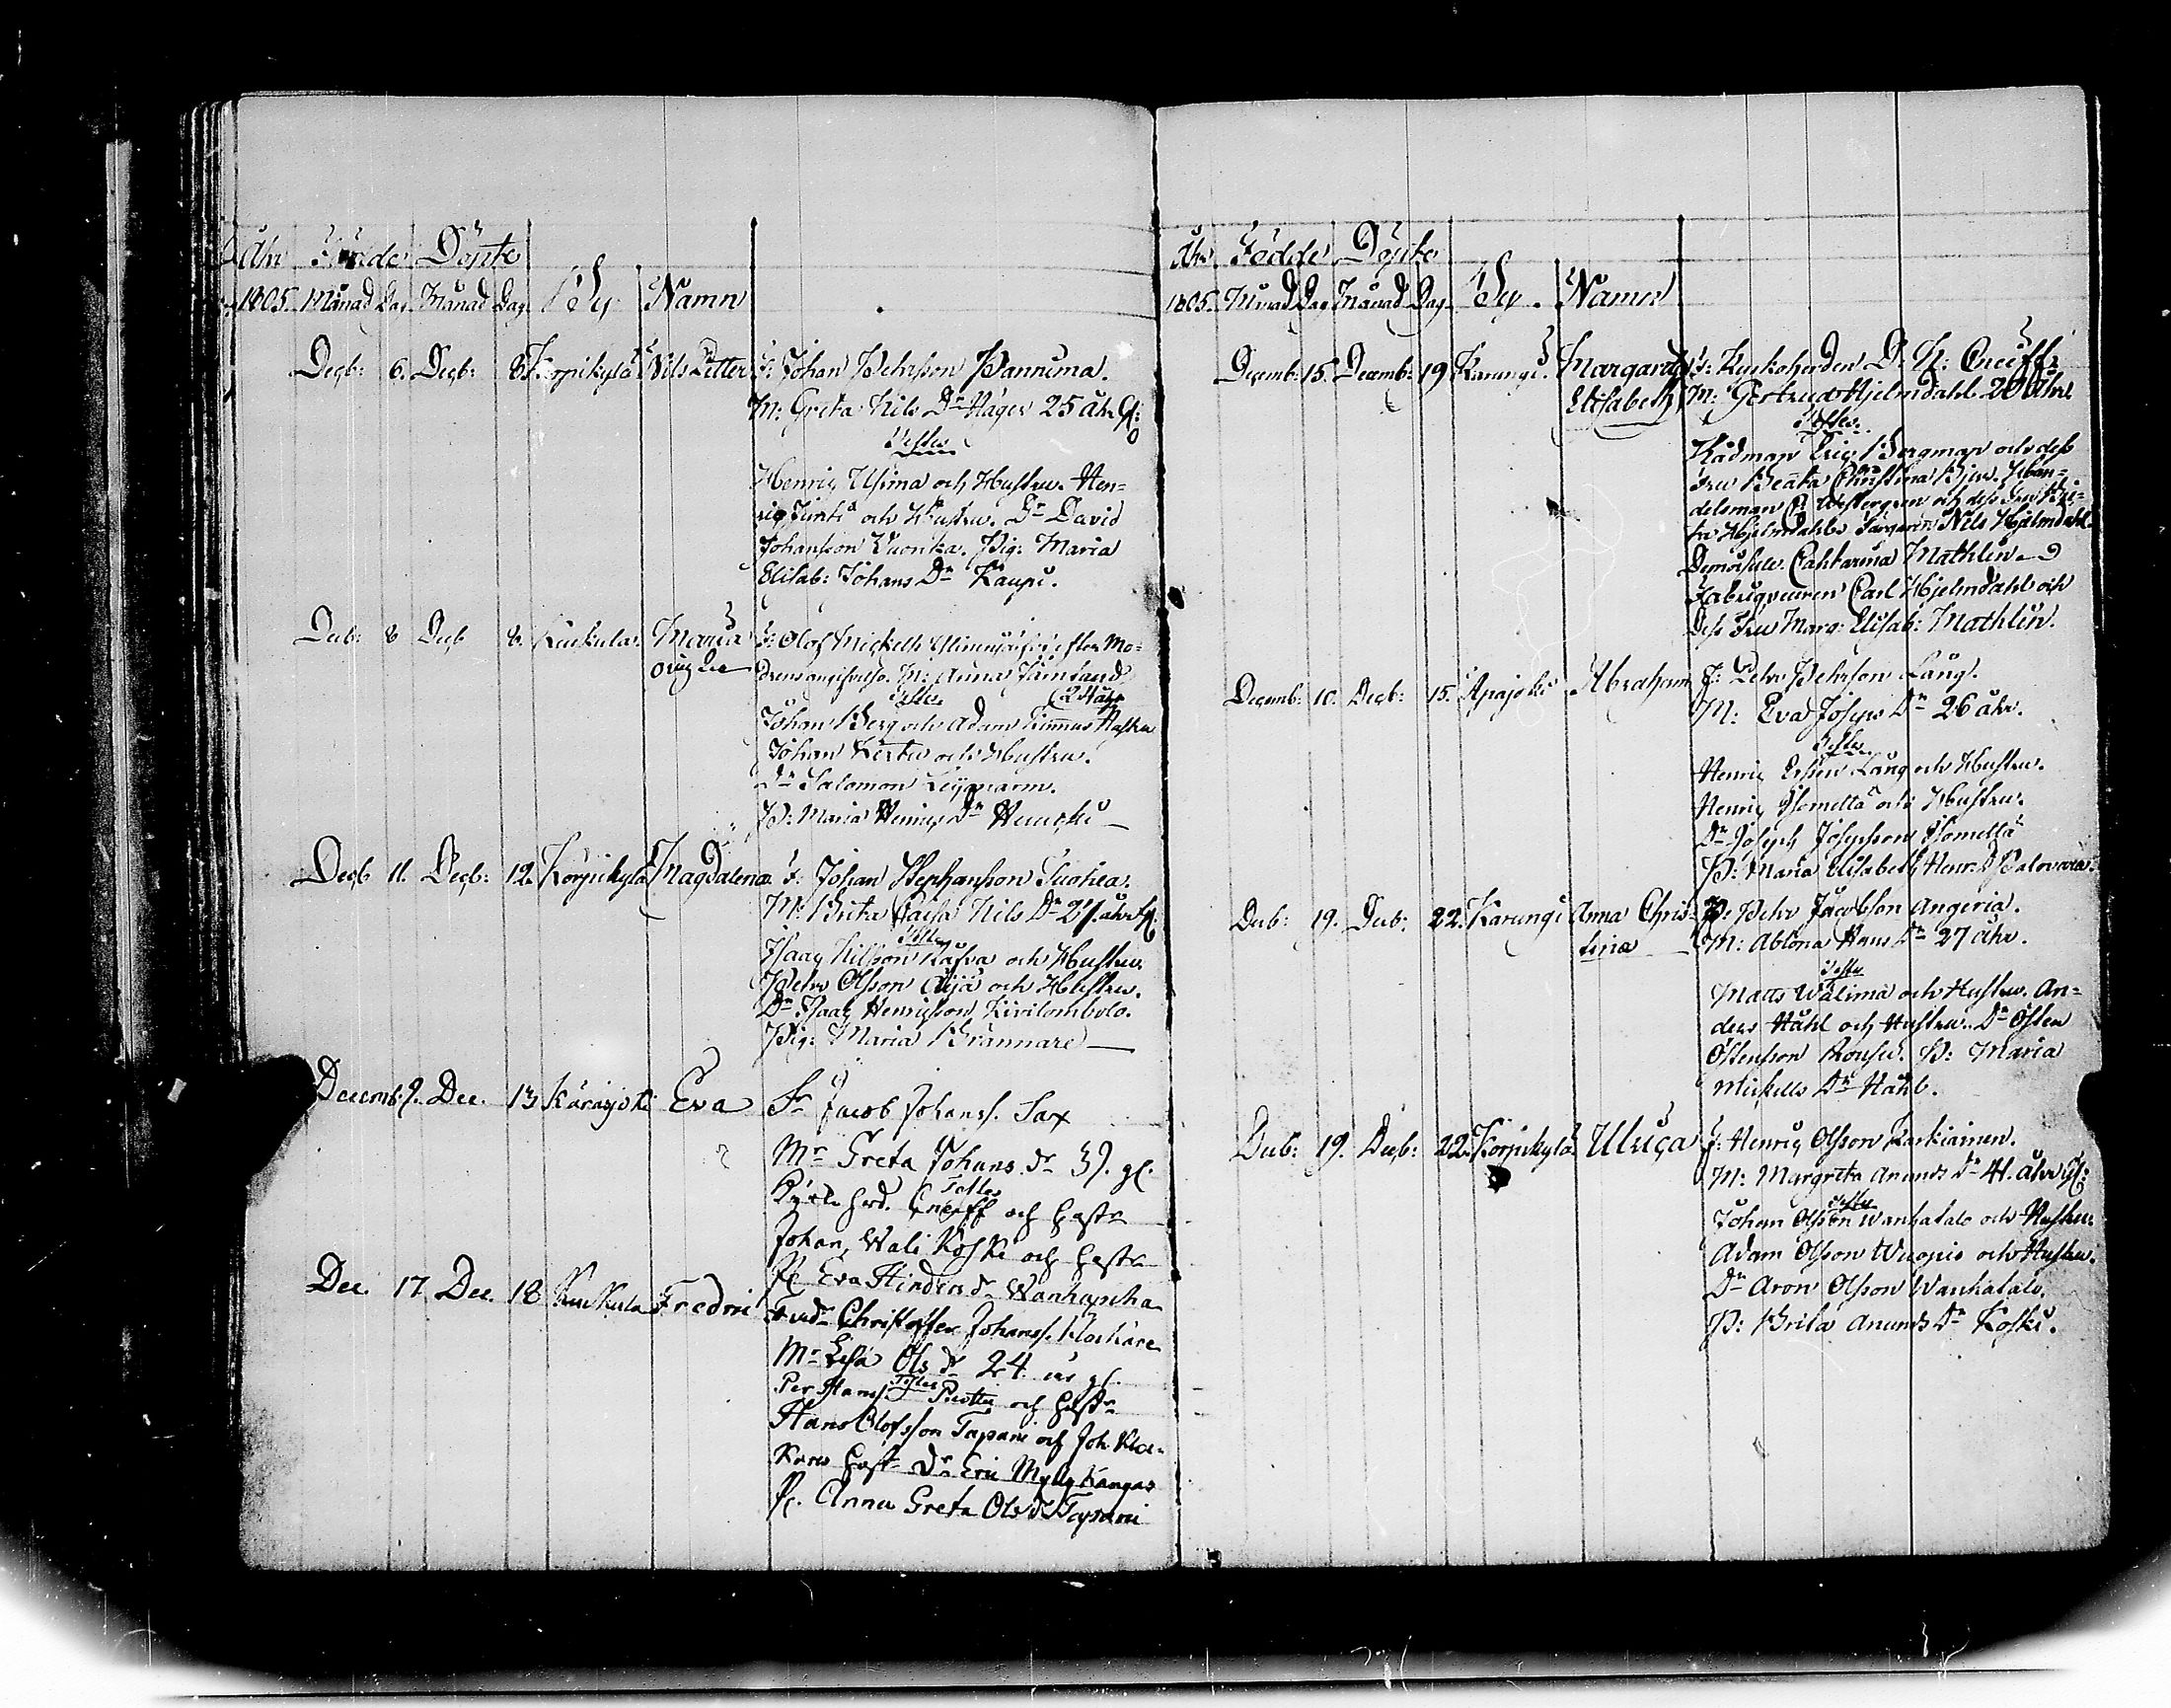 Åhr Födde Döpte
1805. Månad Dag. Månad Dag. By Namn
Decb: 6. Decb: 8. Korpikylä Nils Petter F: Johan Pehrsson Pannima.
M: Greta Nils Dr Häger 25 åhr gl:
Testes
Henric Usima och Hustru. Hen=
ric Junti och Hustru. Dr David
Johansson Vuonka. Pig: Maria
Elisab: Johans Dr Kaupi.
Decb: 8 Decb 8. Kuckula. Maria F: Olof Mickels efter Mo=
oägta drens angifvelse. M: Anna Jämtland
Testes 24 åhr
Johan Berg och Adam Rimmus Hustru
Johan Kertu och Hustru.
Dr Salomon
P: Maria Henrics Dr Huuski
Decb 11. Decb: 12. Korpikylä Magdalena F: Johan Stephansson Tuohea.
M: Brita Caisa Nils Dr 27. åhr gl.
Testes
Isaac Nilsson Räfva och Hustru.
Pehr Olsson Äijä och Hustru.
Dr Isaac Henricsson Kivilombolo.
Pig: Maria Brännare
Decemb: 9. Dec. 13 Karajoki Eva Fr Jacob Johanss. Sax
Mr Greta Johans dr 39. gl.
Testes
Kyrko herd. Cneiff och Hustr
Johan Wali Koski och Hustr
Pl Eva Hindersdr Wanhapiha
Dec. 17 Dec. 18 Kuckula Fredric Christoffer Johanss. Klockare
Mr Lisa Ols dr 24 års gl.
Testes
Per Hanss. Puotti och Hustr
Hans Olofsson Tapani och Joh. Kloc-
kares Hust Dr Eric Mylly Kangas
Pl. Anna Greta Ols dr Tapani
Åhr Födde Döpte
1805. Månad Dag Månad Dag. By. Namn
Decemb: 15. Decemb: 19 Karungi. Margareta F: Kyrkoherden D. N: Cneiff.
Elisabeth M: Gertrud Hjelmdahl 20 Åhr
Testes.
Rådman Eric Bergman och dess
Fru Beata Christina Bjur. Han=
delsman P. Westergren och dess Fru Bri=
ta Hjelmdahl. Nils Hjelmdahl.
Demoiselle Catharina Mathlin
Fabriqueuren Carl Hjelmdahl och
Dess Fru Marg: Elisab: Mathlin.
Decemb: 10. Decb: 15. Apajoki Abraham F: Pehr Pehrsson Lång.
M: Eva Joseps Dr 26 åhr.
Testes
Henric Ersson Lång och Hustru.
Henric Ylomettä och Hustru.
Dr Joseph Josepsson Ylomettä
P: Maria Elisabeth Henr: D Palovara.
Decb: 19. Decb: 22. Karungi Anna Chris= F: Pehr Jacobsson Angeria.
tina M: Ablona Hans Dr 27 åhr.
Testes
Matts Wälimä och Hustru. An=
ders Håhl och Hustru. Dr Östen
Östensson Rousu. P: Maria
Mickells Dr Håhl.
Decb: 19. Decb: 22. Korpikylä Ulrica F: Henric Olsson Karkiainen.
M: Margreta Anunds Dr 41. åhr gl:
Testes
Johan Olsson Wanhatalo och Hustru
Adam Olsson Wuopio och Hustru.
Dr Aron Olsson Wanhatalo.
P: Brita Anunds Dr Koski.